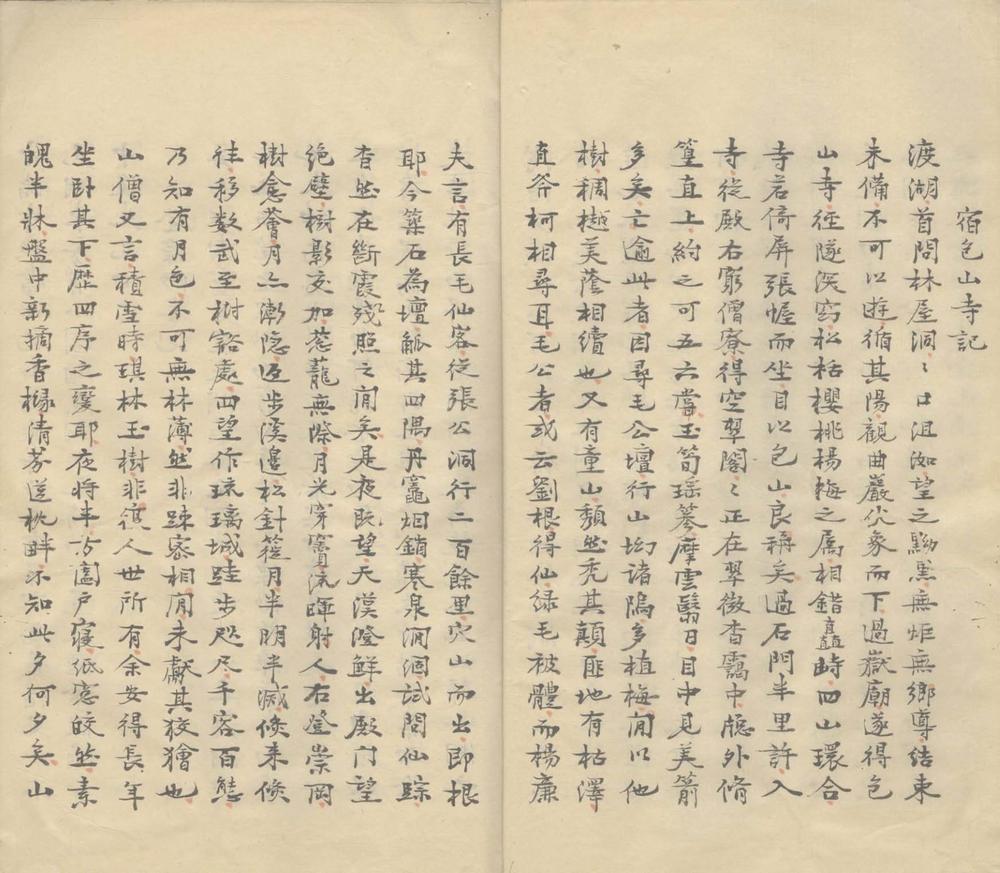 宿包山寺記
渡湖首問林屋洞〻口沮洳望之黝黑無炬無鄉導結束
未備不可以遊循其陽觀曲巖伏象而下過嶽廟遂得包
山寺徑隧深窈松栝櫻桃楊梅之屬相錯矗峙四山環合
寺若倚屏張幄而坐目以包山良稱矣過石門半里許入
寺從殿右窮僧寮得空翠閣〻正在翠微杳靄中牕外脩
篁直上約之可五六嘗玉筍瑶篸摩雲翳日目中見美箭
多矣亡逾此者因尋毛公壇行山坳諸隖多植梅間以他
樹稠樾美蔭相續也又有童山頽然秃其顛匪地有枯澤
直斧柯相尋耳毛公者或云劉根得仙緑毛被體而楊廉
夫言有長毛仙客從張公洞行二百餘里穴山而出即根
耶今築石為壇觚其四隅丹竈烟銷寒泉涸涸試問仙踪
杳然在斷霞殘照之間矣是夜既望天漢澄鮮出殿门望
絶壁樹影交加葱蘢無際月光穿竇流暉射人右登崇岡
樹愈薈月亦漸隐返步溪邊松針篵月半明半滅倏来倏
往移数武至樹豁處四望作琉璃城跬步咫尺千容百態
乃知有月色不可無林薄然非踈密相間未獻其狡獪也
山僧又言積雪時琪林玉樹非復人世所有余安得長年
坐卧其下歴四序之變耶夜将半方闔户寢纸窓皎然素
魄半牀盤中新摘香櫞清芬送枕畔不知此夕何夕矣山